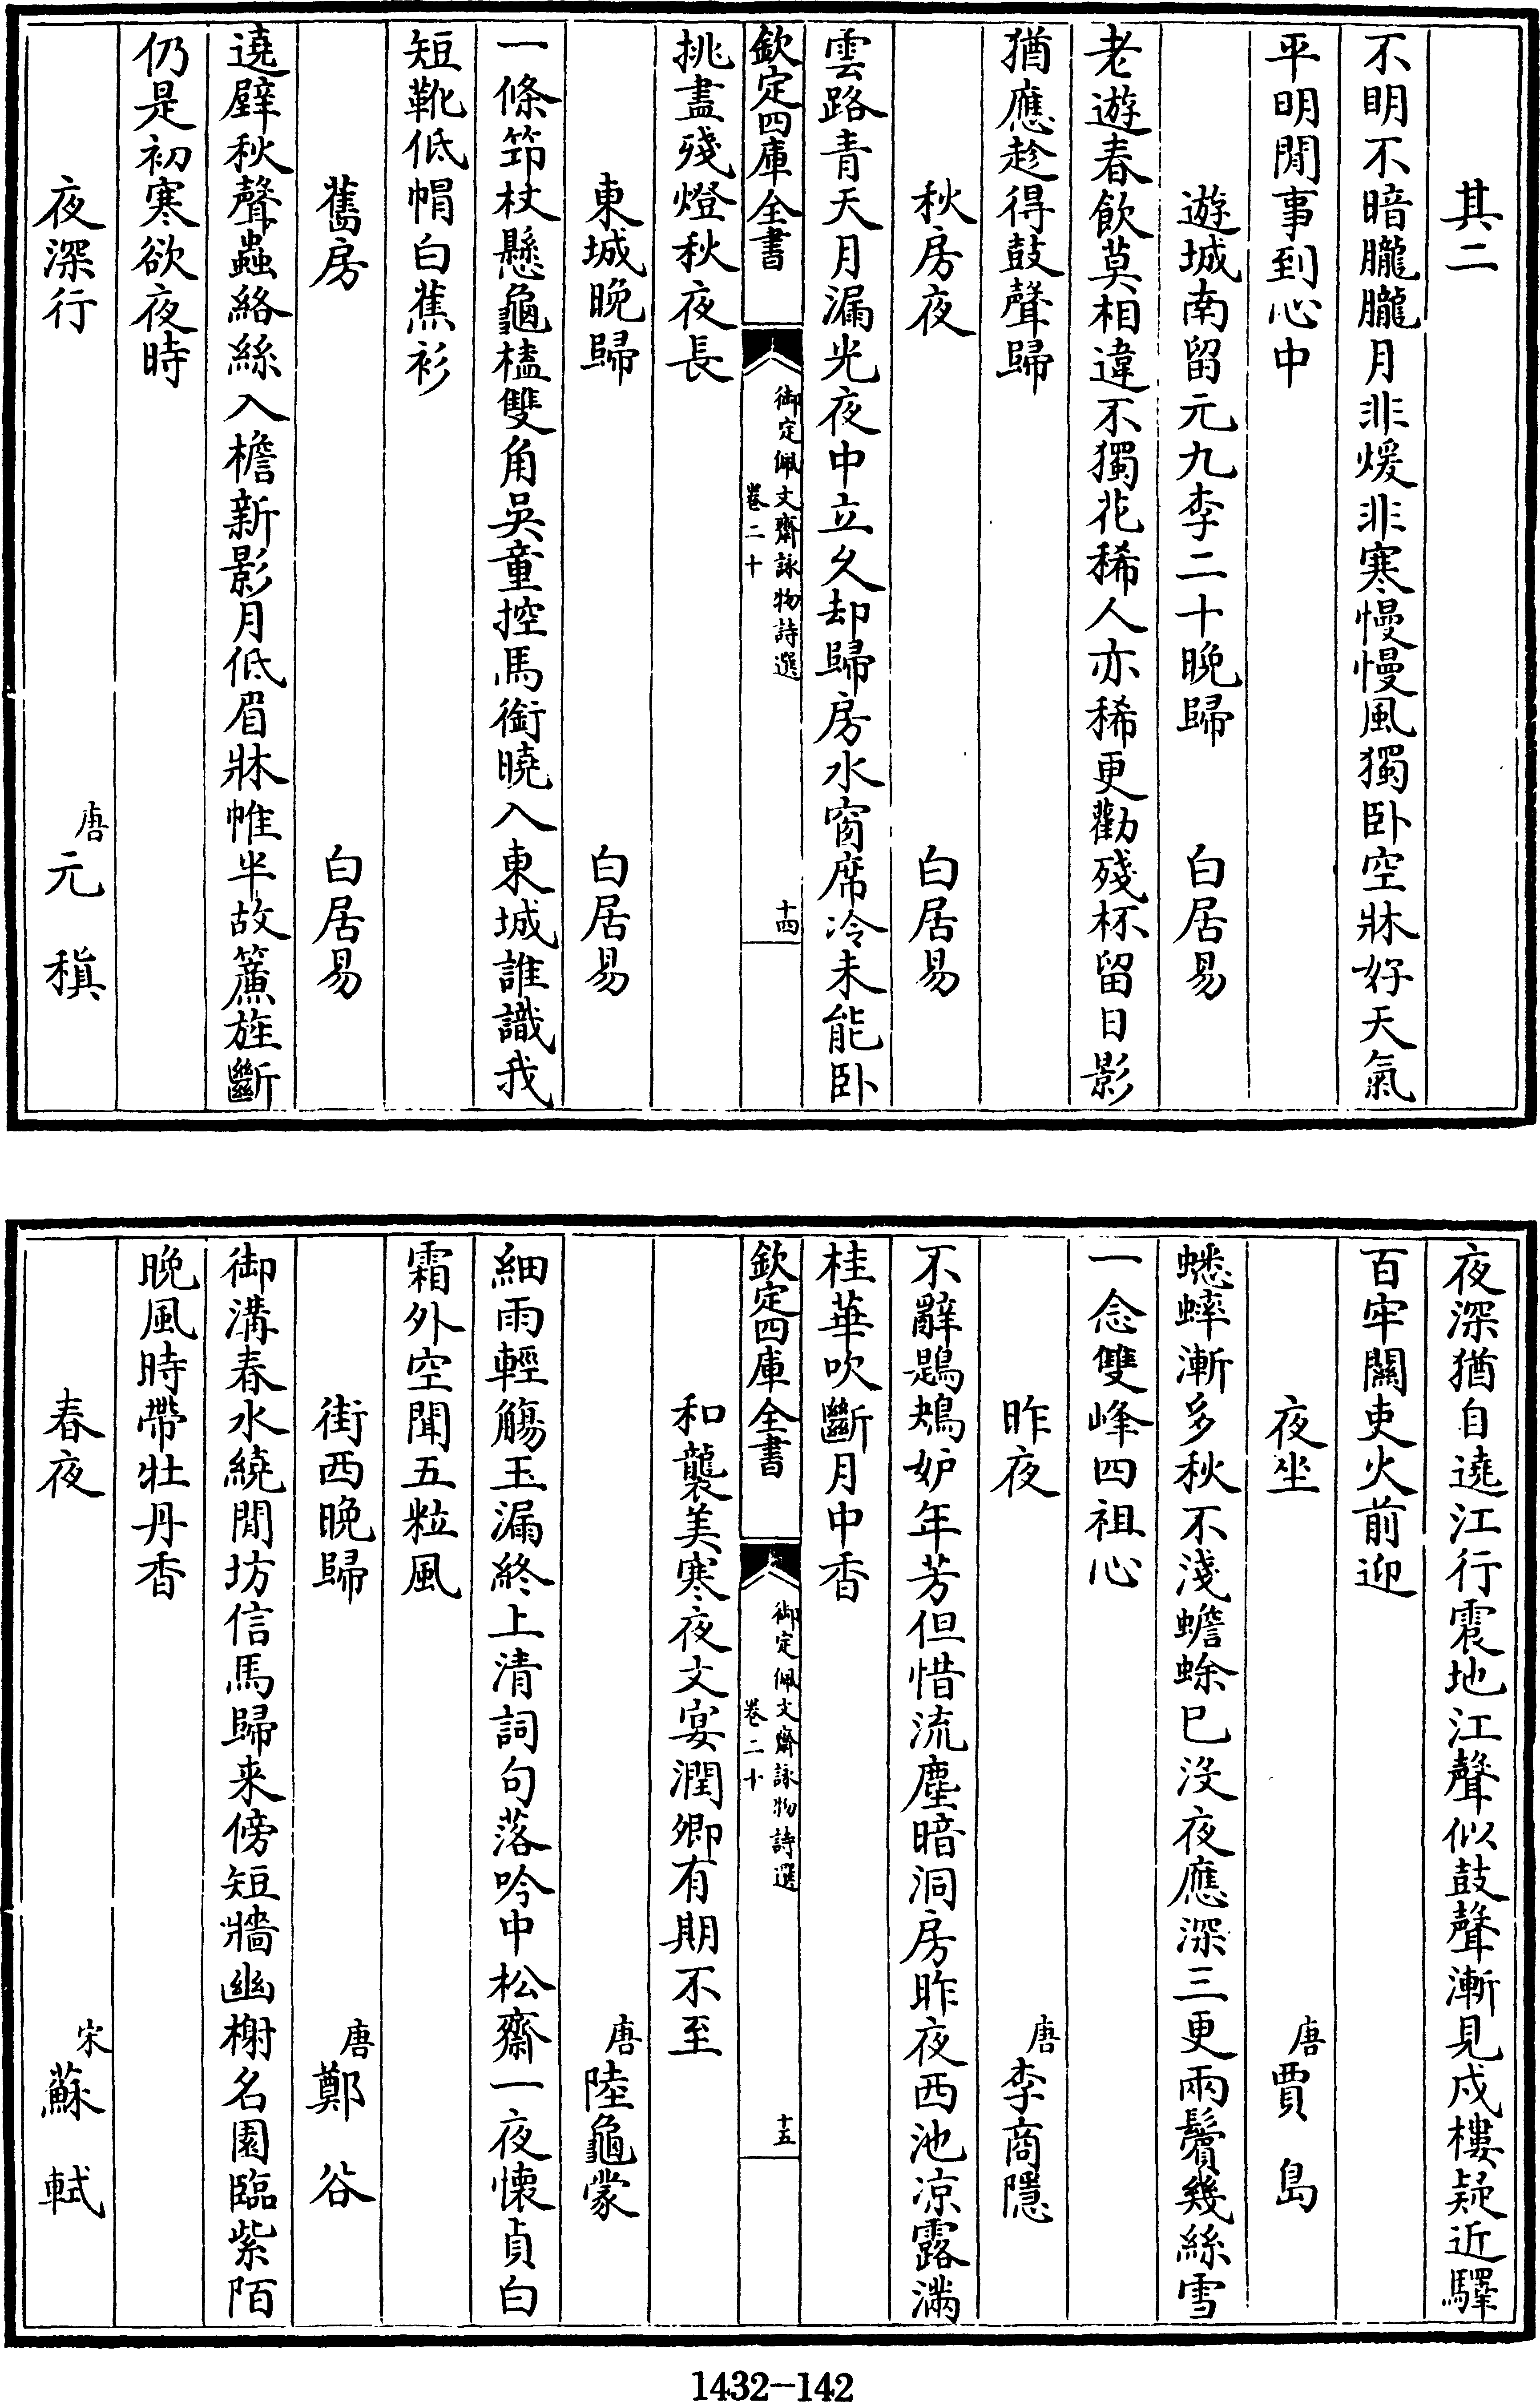 其二
不明不暗朧朧月非煖非寒慢慢風獨卧空牀好天氣
平明閒事到心中
遊城南留元九李二十晚歸 白居易
老遊春飲莫相違不獨花稀人亦稀更勸殘杯留日影
猶應趁得鼓聲歸
秋房夜 白居易
雲路青天月漏光夜中立久却歸房水窗席冷未能卧
欽定四庫全書 御定佩文齋詠物詩選 卷二十 十四
挑盡殘燈秋夜長
東城晚歸 白居易
一條笻杖懸龜榼雙角吳童控馬銜曉入東城誰識我
短靴低帽白蕉衫
舊房 白居易
遶壁秋聲蟲絡絲入檐新影月低眉牀帷半故簾旌斷
仍是初寒欲夜時
夜深行 唐元稹
夜深猶自遶江行震地江聲似鼓聲漸見戍樓疑近驛
百牢關吏火前迎
夜坐 唐賈島
蟋蟀漸多秋不淺蟾蜍已没夜應深三更兩鬢幾絲雪
一念雙峰四祖心
昨夜 唐李商隱
不辭鶗鴂妒年芳但惜流塵暗洞房昨夜西池凉露滿
桂華吹斷月中香
欽定四庫全書 御定佩文齋詠物詩選 卷二十 十五
和襲美寒夜文宴潤卿有期不至
唐陸龜蒙
細雨輕觴玉漏終上清詞句落吟中松齋一夜懷貞白
霜外空聞五粒風
街西晚歸 唐鄭谷
御溝春水繞閒坊信馬歸来傍短牆幽榭名園臨紫陌
晚風時帶牡丹香
春夜 宋蘇軾
1432-142